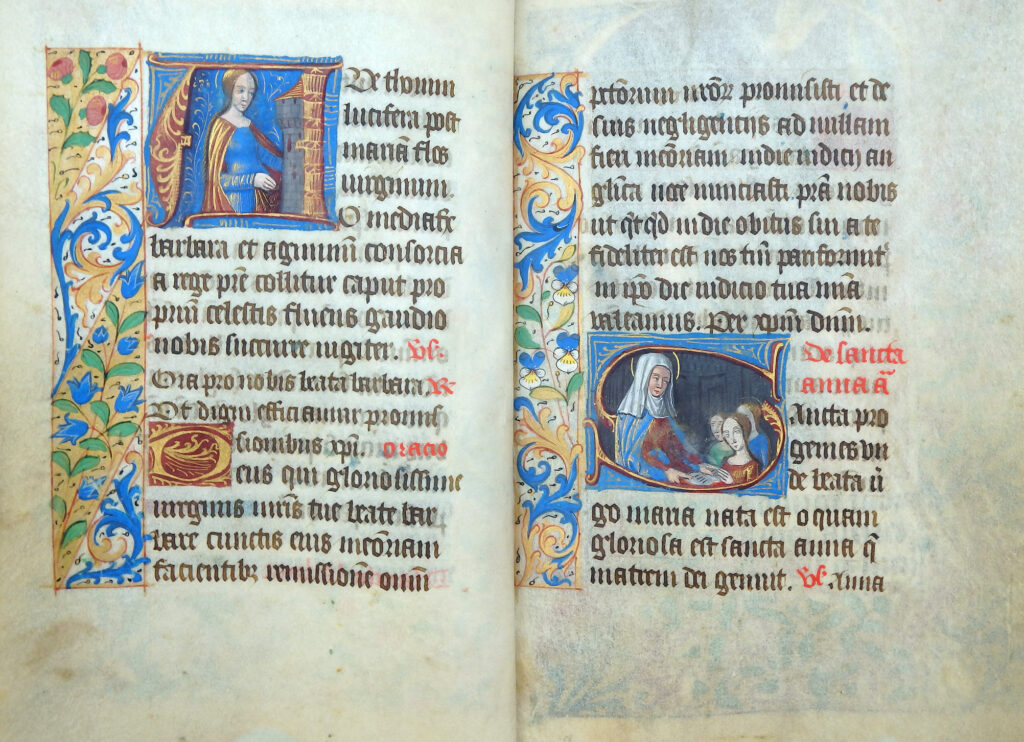 De thorum
lucifera post
mariā flos
uirginum.
O mediatrix
barbara et agminum consorcia
a rege prē collitur caput pro
prium celestis fluens gaudio
nobis succurre iugiter. Vs.
Ora pro nobis beata barbara R
Vt digni efficiamur promis
sionibus xpi. oracio
eus qui gloriosissime
uirginis mris tue beate bar
bare cunctis eius meōriam
facientibz remissionē omiū
pctorum promisisti et de
suis negligentijs ad nullam
fieri meōriam in die iudicij an
glica uoce nunciasti prā nobis
ut qtqd in die obitus sui a te
fideliter est nos tm
in ipo die iudicio tua
ualeamus. Per xpm dnm.
de sancta
anna aā
Ancta pro
genies un
de beata ui
go maria nata est o quam
gloriosa est sancta anna q
matrem dei genuit. Vs. Anna